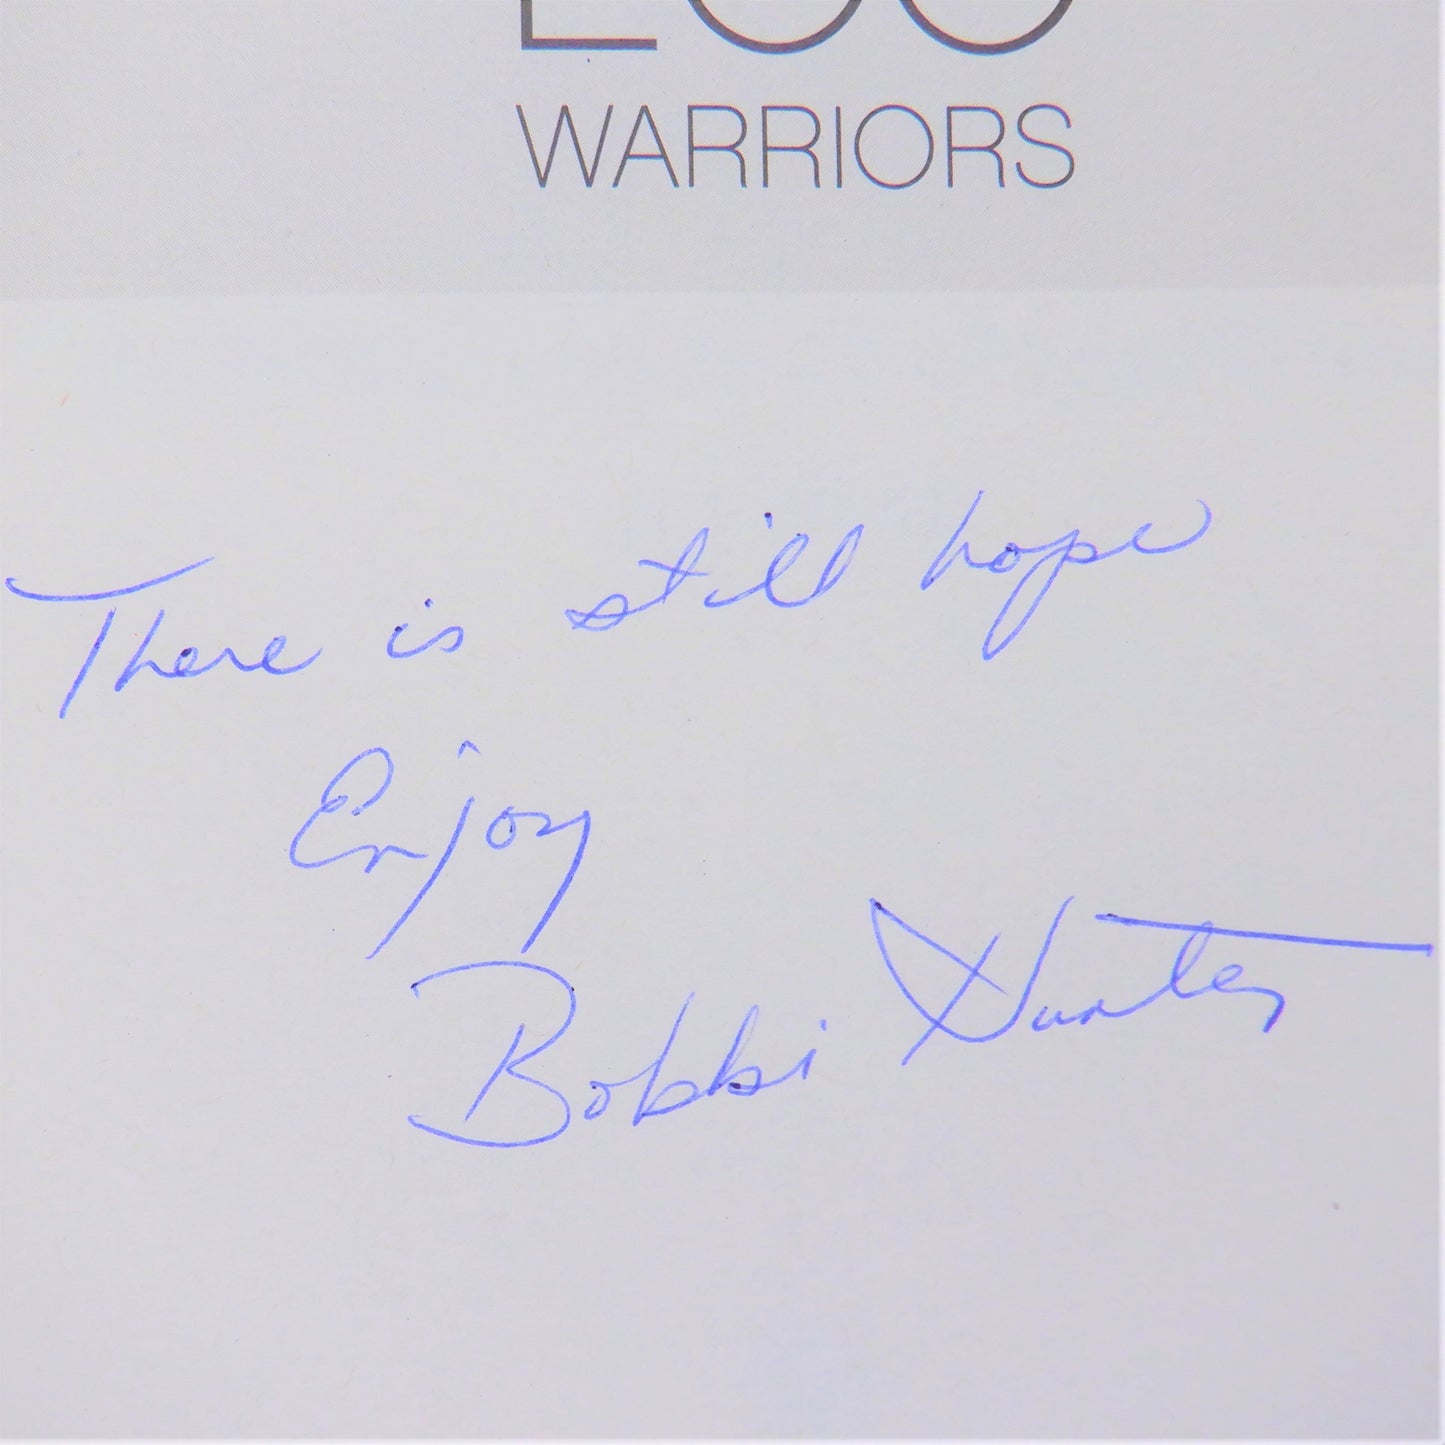 ECO
WARRIORS
There is still hope
Enjoy
Bobbi Hunter